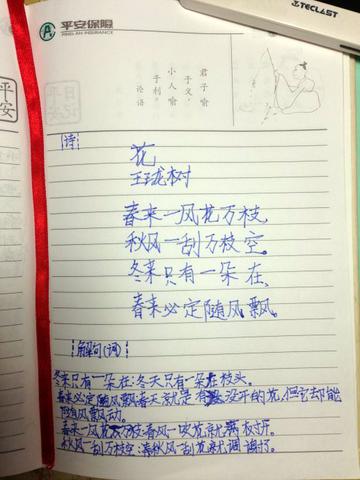 TECLAST
平安保险
PING AN INSURANCE
君子喻
于义，
小人喻
于利。
论语
平安
诗
花
王珑树
春来一风花万枝，
秋风一刮万枝空。
冬菜只有一朵在，
春来必定随风飘。
解句(词)
冬来只有一朵在:冬天只有一朵在枝头。
春来必定随风飘:春天就是有没开的花,但它却能
随风飘动。
春来一风花万枝:春风一吹花就满树开。
秋风一刮万枝空:秋风一刮花就凋